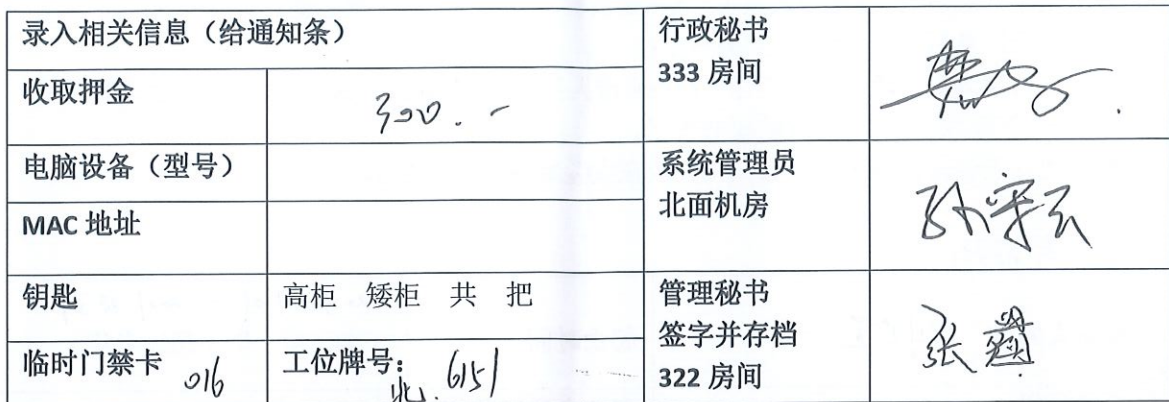 录入相关信息（给通知条）
行政秘书
333 房间
收取押金
300.-
电脑设备（型号）
系统管理员
北面机房
MAC 地址
钥匙
高柜 矮柜 共 把
管理秘书
签字并存档
322 房间
张
临时门禁卡 016
工位牌号：北. 6151